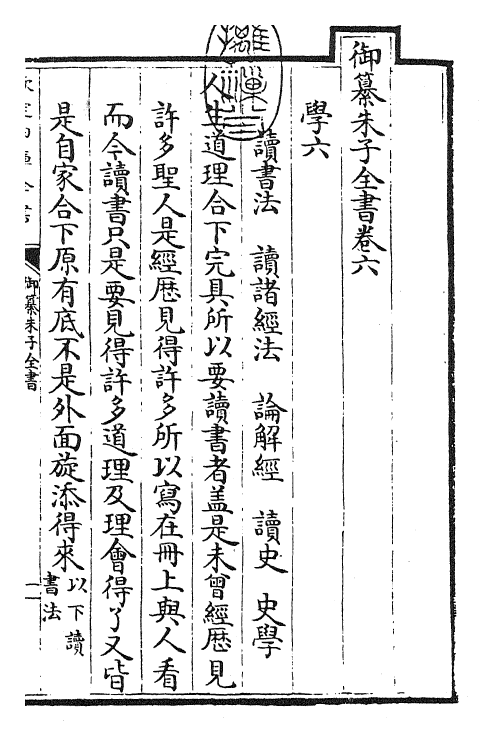 御纂朱子全書卷六
學六
讀書法 讀諸經法 論解經 讀史 史學
人生道理合下完具所以要讀書者盖是未曾經歴見
許多聖人是經歴見得許多所以寫在冊上與人看
而今讀書只是要見得許多道理及理會得了又皆
是自家合下原有底不是外面旋添得來以下讀
書法
御纂朱子全書
一